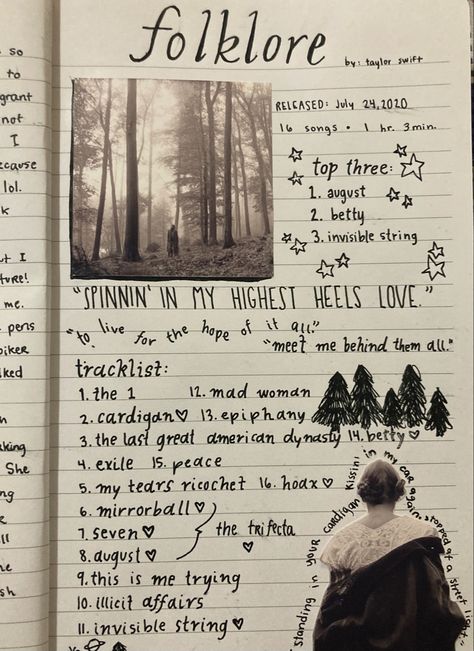 so
to
grant
not
I
because
lol.
k
ut I
ture!
me.
pens
piker
lked
n
aking
She
ng
ll
he
sh
folklore
by: taylor swift
RELEASED: July 24, 2020
16 songs • 1 hr. 3 min.
top three:
1. august
2. betty
3. invisible string
"SPINNIN' IN MY HIGHEST HEELS LOVE."
"to live for the hope of it all."
"meet me behind them all."
tracklist:
1. the 1 12. mad woman
2. cardigan♡ 13. epiphany
3. the last great american dynasty 14. betty♡
4. exile 15. peace
5. my tears ricochet 16. hoax♡
6. mirrorball♡
7. seven♡
8. august♡
the trifecta
♡
9. this is me trying
10. illicit affairs
11. invisible string♡
"standing in your cardigan kissin' in my car again stopped at a street light"